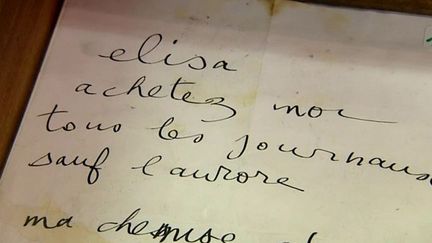 elisa
achetez moi
tous les journaux
sauf l'aurore
ma chemise